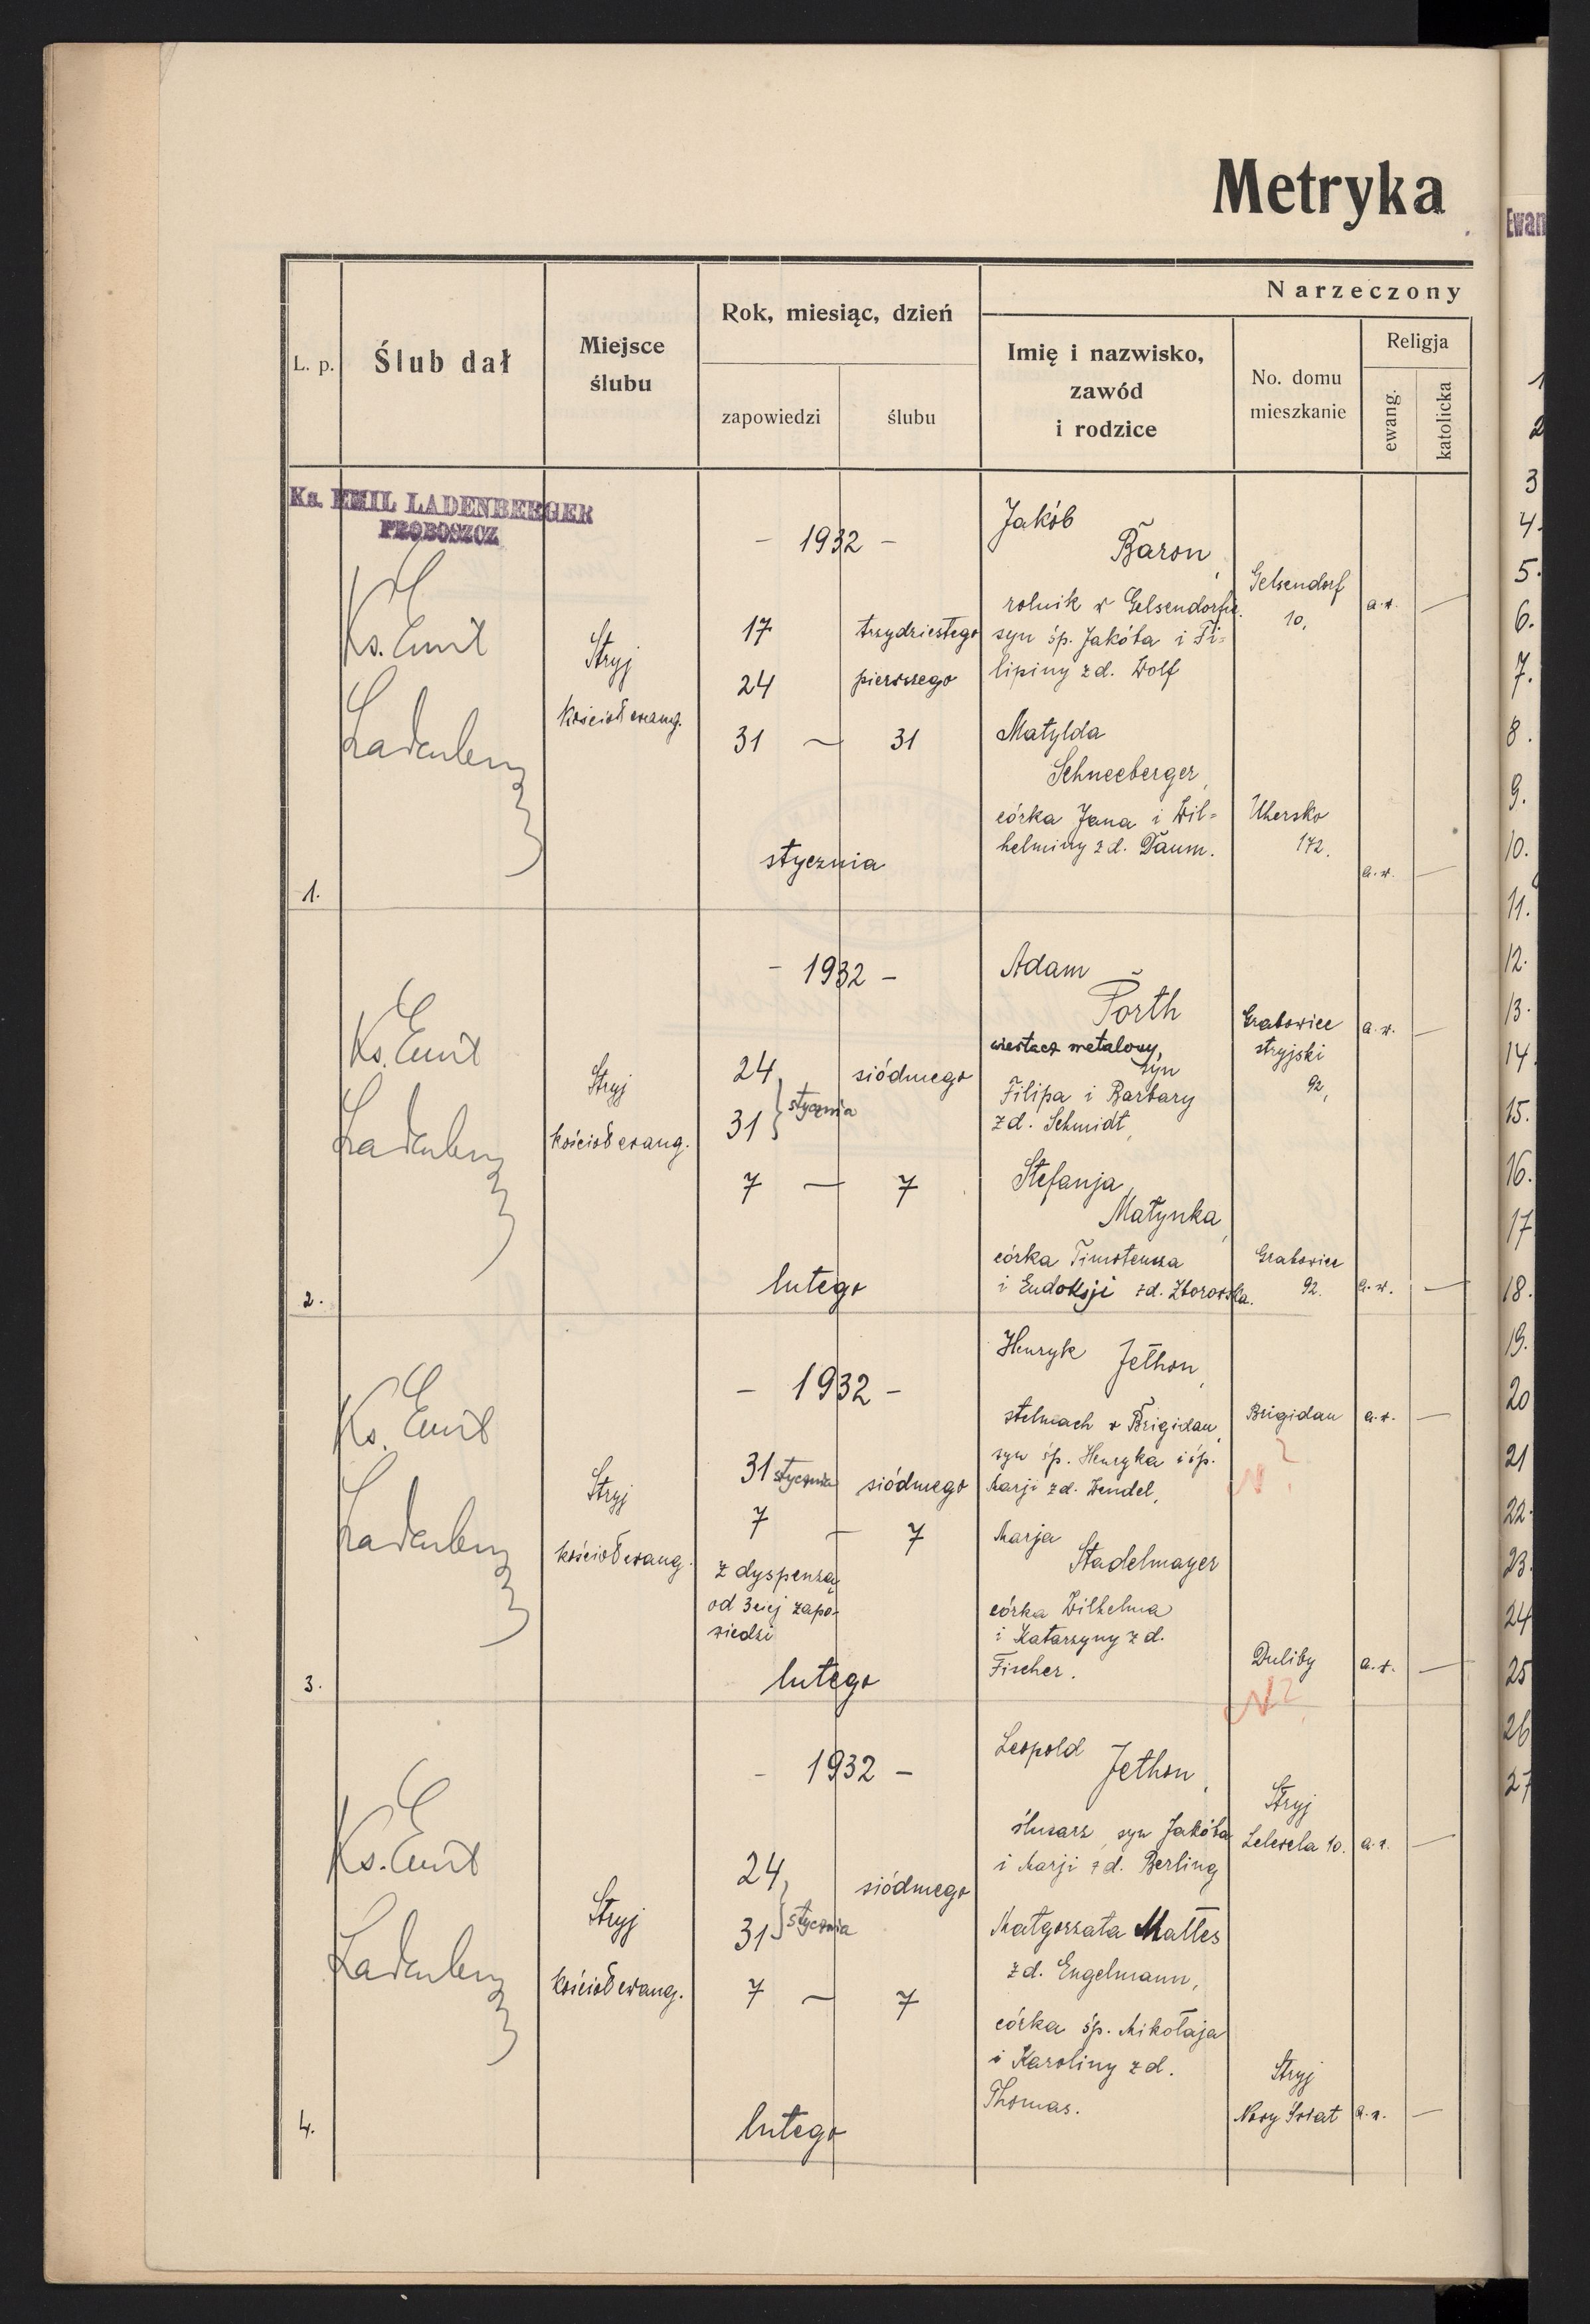 Metryka
Ewan
Narzeczony
L. p.
Ślub dał
Miejsce
ślubu
Rok, miesiąc, dzień
zapowiedzi
ślubu
Imię i nazwisko,
zawód
i rodzice
No. domu
mieszkanie
Religja
ewang.
katolicka
Ks. EMIL LADENBERGER
PROBOSZCZ
1.
Ks. Emil
Ladenberger
Stryj
kościoł ewang.
- 1932 -
17
24
31 —
trzydziestego
pierwszego
31
stycznia
Jakób
Baron,
rolnik w Gelsendorfie.
syn śp. Jakóba i Fi=
lipiny z d. Wolf
Gelsendorf
10,
a.w. —
Matylda
Schneeberger,
córka Jana i Wil=
helminy z d. Daum.
Uhersko
172.
a.w. —
2.
Ks. Emil
Ladenberger
Stryj
kościoł ewang.
- 1932 -
24
31 } stycznia
7 —
siódmego
7
lutego
Adam
Porth
wiertacz metalowy,
syn
Filipa i Barbary
z d. Schmidt,
Grabowice
stryjski
92,
a.w. —
Stefanja
Matynka,
córka Timoteusza
i Eudoksji z d. Zborowska.
Grabowice
92.
a.w. —
3.
Ks. Emil
Ladenberger
Stryj
kościoł ewang.
- 1932 -
31 stycznia
7 —
siódmego
7
z dyspenzą
od 3ciej zapo-
wiedzi
lutego
Henryk Jethon,
stelmach w Brigidau,
syn śp. Henryka i śp.
Marji z d. Wendel,
Brigidau
N?
a.w. —
Marja
Stadelmayer
córka Wilhelma
i Katarzyny z d.
Fischer.
Duliby
N?
a.w. —
4.
Ks. Emil
Ladenberger
Stryj
kościoł ewang.
- 1932 -
24
31 } stycznia
7 —
siódmego
7
lutego
Leopold
Jethon,
ślusarz, syn Jakóba
i Marji z d. Berling
Stryj
Lelewela 10.
a.w. —
Małgorzata Mattes
z d. Engelmann,
córka śp. Mikołaja
i Karoliny z d.
Thomas.
Stryj
Nowy Świat
a.w. —
1
2
3
4.
5.
6.
7.
8.
9.
10.
11.
12.
13.
14.
15.
16.
17
18.
19.
20
21
22.
23.
24
25
26
27